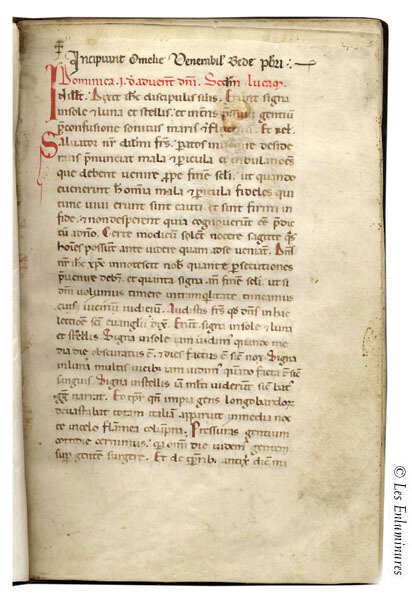 Incipiunt Omelie Venerabil' Bede pbri :
Dominica .i. d' aduent' dni. Scdm lucam
In illt. Dixit ihc discipulis suis. Erunt signa
in sole & luna et stellis. et in tris gentium
p confusione sonitus maris & Et rel.
Saluator nr dilm frs. patos inuenire deside
rans pnunciat mala & picula et
que debent uenire ppe finem seli. ut quando
euenerint h omia mala & picula fideles qui
tunc uiui erunt sint cauti. et sint firmi in
fide. & non desperent quia cognouerunt ee pdic
tu a dno. Certe modicum solent nocere sagitte qs
hoies possunt ante uidere quam ad se ueniant. Dns
nr ihc xpc innotescit nob quante psecutiones
puenire debent. et quanta signa an finem seli. ut si
dnm uolumus timere in tranquilitate. timeamus
eius uicinum iudicium. Audistis frs qd dns in hac
lectione sci euangelii dix. Erunt signa in sole & luna
et stellis. Signa in sole iam uidim quando me
dia die obscuratus e. & dies factus e sic nox. Signa
in luna multis uicib iam uidim quando facta e sic
sanguis. Signa in stellis iam multi uiderunt sic bat
gg narrat. Et tpr qn impia gens longobardor
deuastabat totam italiam apparuit in media noc
te in celo flamea columpna. Pressuras gentium
cotidie cernimus. quia omi die uidem gentem
sup gentem surgere. Et de anteq diem iu
© Les Enluminures